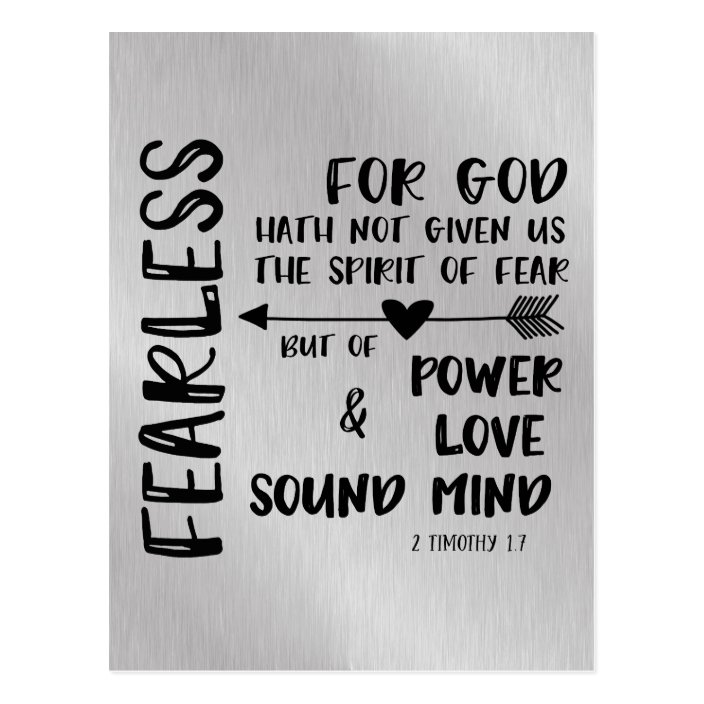 FEARLESS
FOR GOD
HATH NOT GIVEN US
THE SPIRIT OF FEAR
BUT OF
POWER
& LOVE
SOUND MIND
2 TIMOTHY 1.7